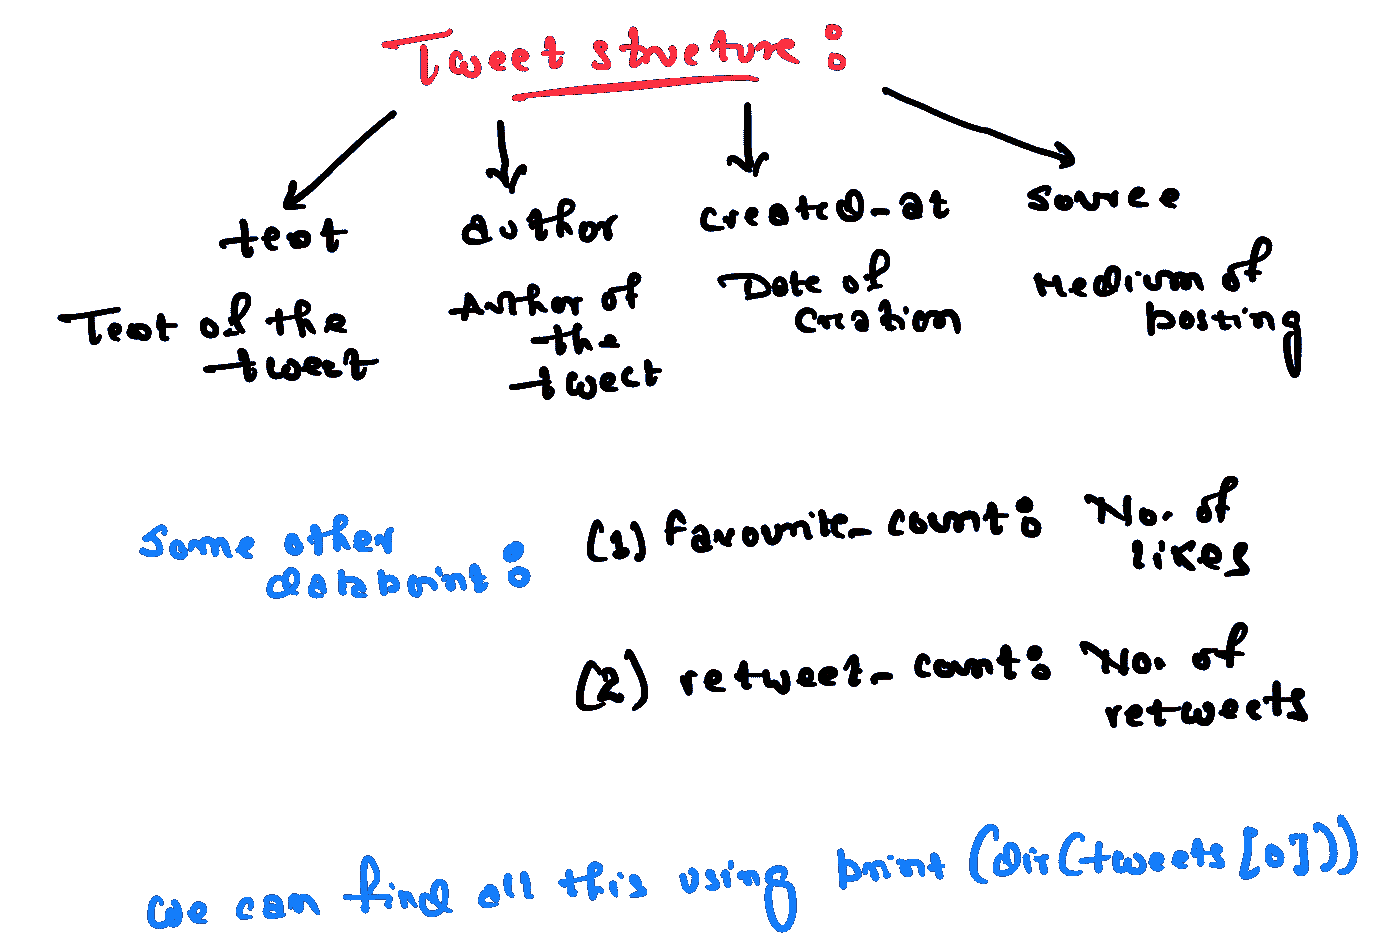 Tweet structure:
text
author
created_at
source
Text of the
tweet
Author of
the
tweet
Date of
creation
Medium of
posting
Some other
datapoint:
(1) favourite_count: No. of
likes
(2) retweet_count: No. of
retweets
we can find all this using print (dir(tweets[0]))